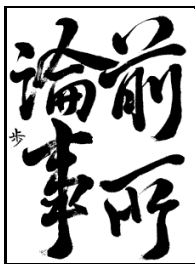 前所
論事
歩